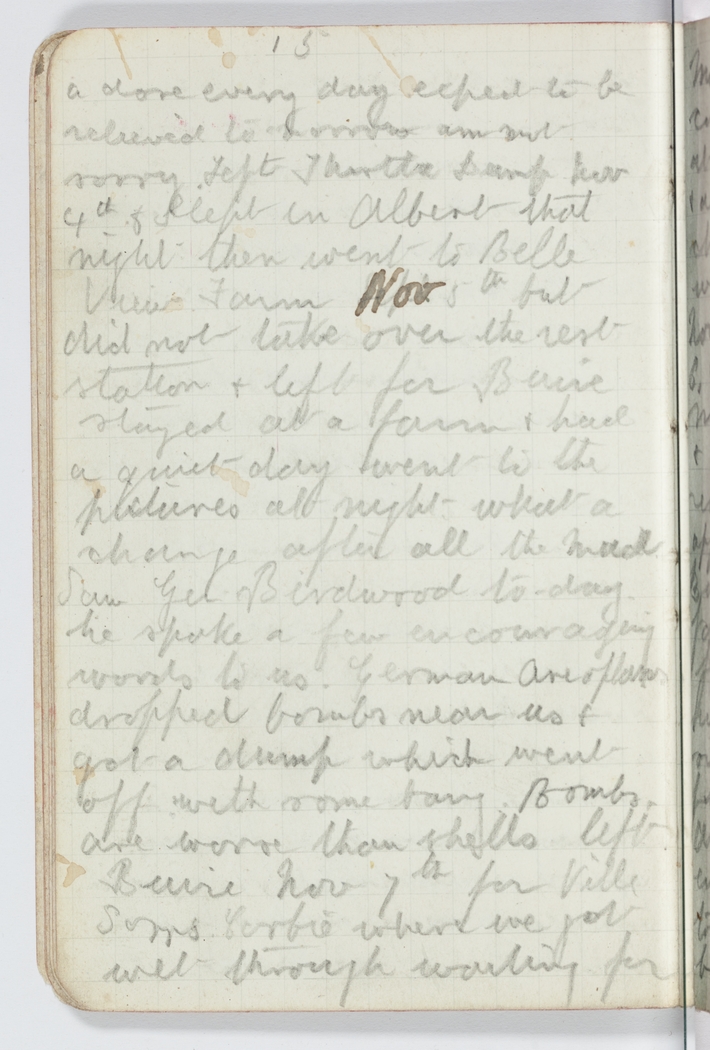 15
a dose every day expect to be
relieved to morrow am not
sorry. Left Thistle Dump Nov
4th & slept in Albert that
night then went to Belle
View Farm Nov 5th but
did not take over the rest
station & left for Buire
stayed at a farm & had
a quiet day went to the
pictures at night what a
change after all the mud
Saw Gen Birdwood to-day.
he spoke a few encouraging
words to us. German Areoplanes
dropped bombs near us &
got a dump which went
off with some bang. Bombs
are worse than shells left
Buire Nov 7th for Ville
Corbie where we got
wet through waiting for